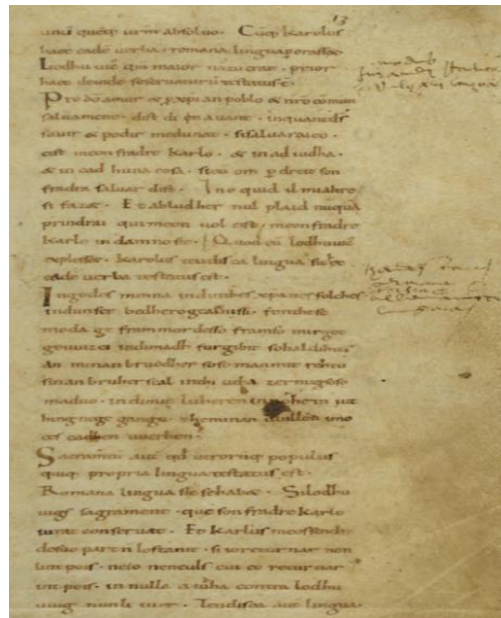 13
unicuiq; urm absoluo. Cuq; karolus
haec eade verba romana lingua perorasset
Lodhuuic qm maior natu erat prior
haec deinde se seruaturu testatus e.
Pro do amur & p xpian poblo & nro comun
saluament. dist di en auant. inquantds
sauir & podir medunat. sisaluaraieo.
cist meon fradre karlo. & in ad iudha.
& in cad huna cosa. sicu om p dreit son
fradra saluar dist. Ino quid il mi altre
si faz&. Et abludher nul plaid nuqua
prindrai qui meon uol cist meonfradre
karle in damno sit. Quod cu lodhuuic
explesset. karolus teudisca lingua sic ec
eade uerba testatus est.
Ingodes minna indinthes xpanes folches
indunser bedhero gealtnissi. fonthese
moda ge frammordesso framso mirgot
geuuizci indimadh furgibit sohaldihtes
an minan bruodher soso manmit rehtu
sinan bruher scal inthi utha zermigsoso
maduo. indimit luheren innohein iut
hing nege gango. zheminan uuillon imo
ces cadhen uuerhen.
Sacramtu aute qd utrorumq; populus
quiq; propria lingua testatus est.
Romana lingua sic se hab&. Silodhu
uigs sagrament. que son fradre karlo
iurat conseruat. Et karlus meossendra
desuo partn lostanit. si ioreturnar non
lint pois. neio neneuls cui eo returnar
int pois. in nulla aiudha contra lodhu
uuig nunli iuer. Teudisca aut lingua.